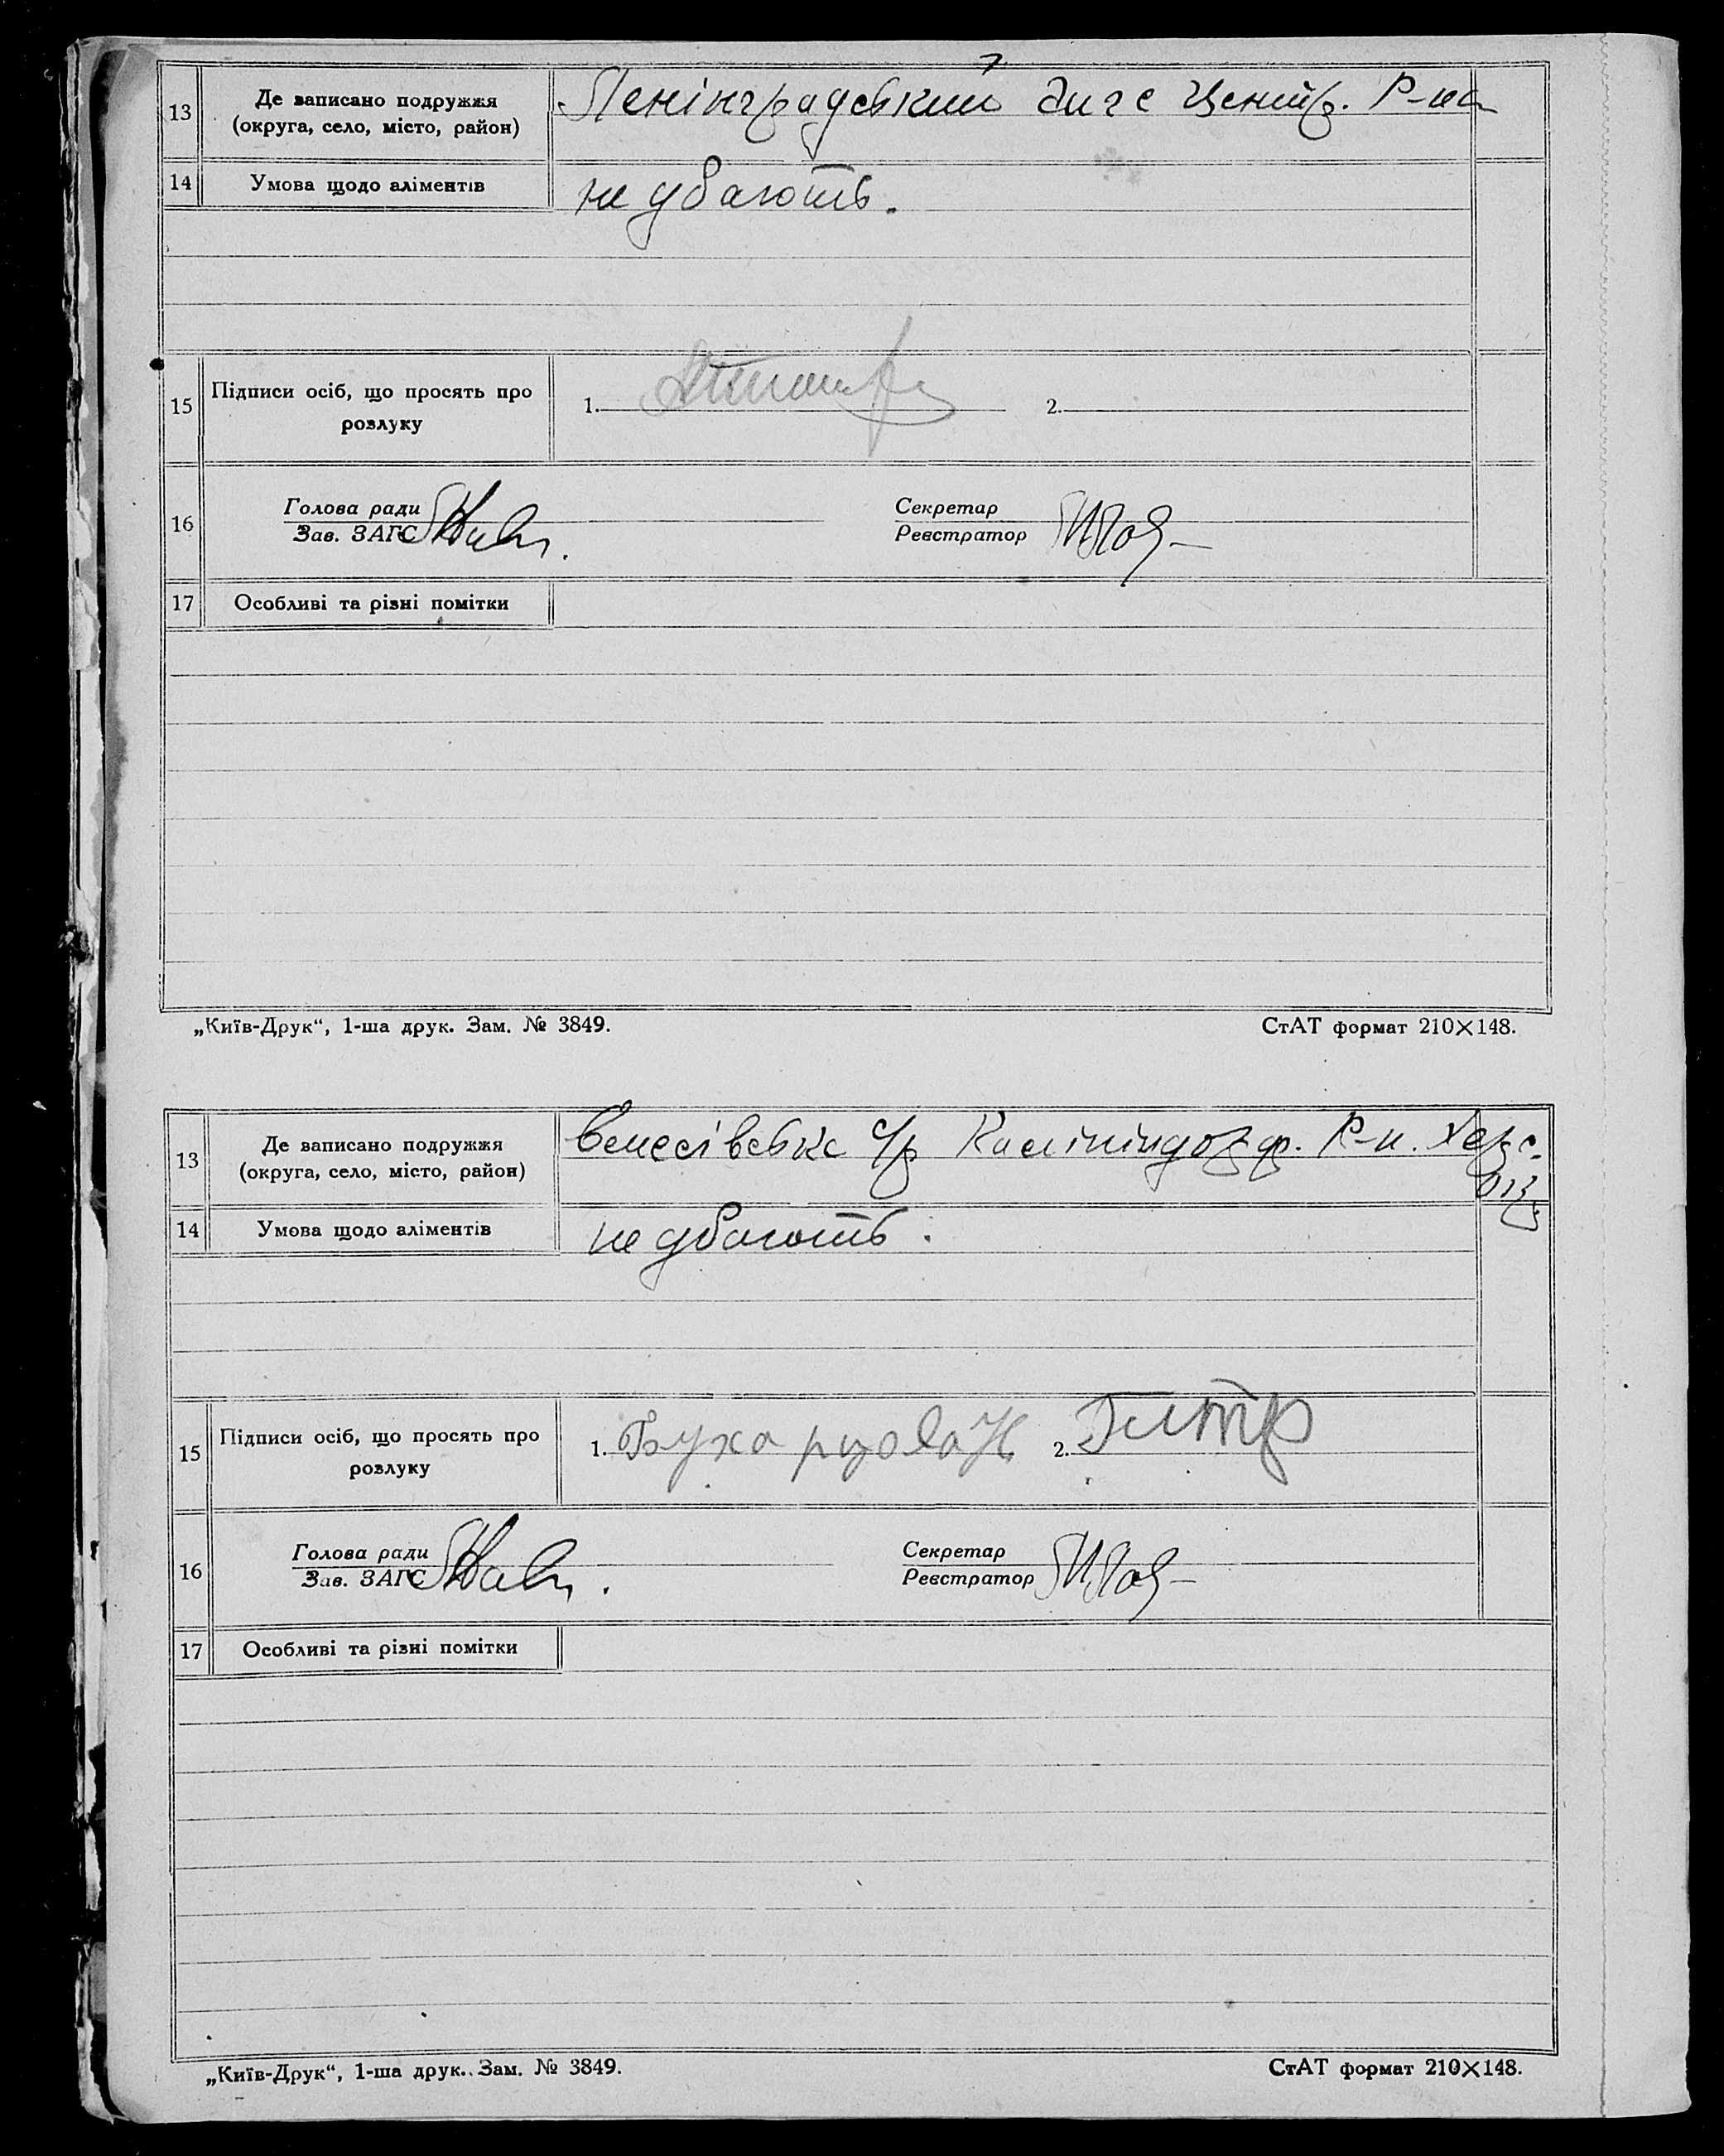 13 Де записано подружжя (округа, село, місто, район) Ленінградський Загс Центр. Р-на
14 Умова щодо аліментів не дбають.
15 Підписи осіб, що просять про розлуку 1. 2.
16 Голова ради Зав. ЗАГС Секретар Реєстратор
17 Особливі та різні помітки
„Київ-Друк“, 1-ша друк. Зам. № 3849. СтАТ формат 210×148.
13 Де записано подружжя (округа, село, місто, район) с/р Калініндорф. Р-н. Херс.
14 Умова щодо аліментів не дбають.
15 Підписи осіб, що просять про розлуку 1. Буха 2.
16 Голова ради Зав. ЗАГС Секретар Реєстратор
17 Особливі та різні помітки
„Київ-Друк“, 1-ша друк. Зам. № 3849. СтАТ формат 210×148.